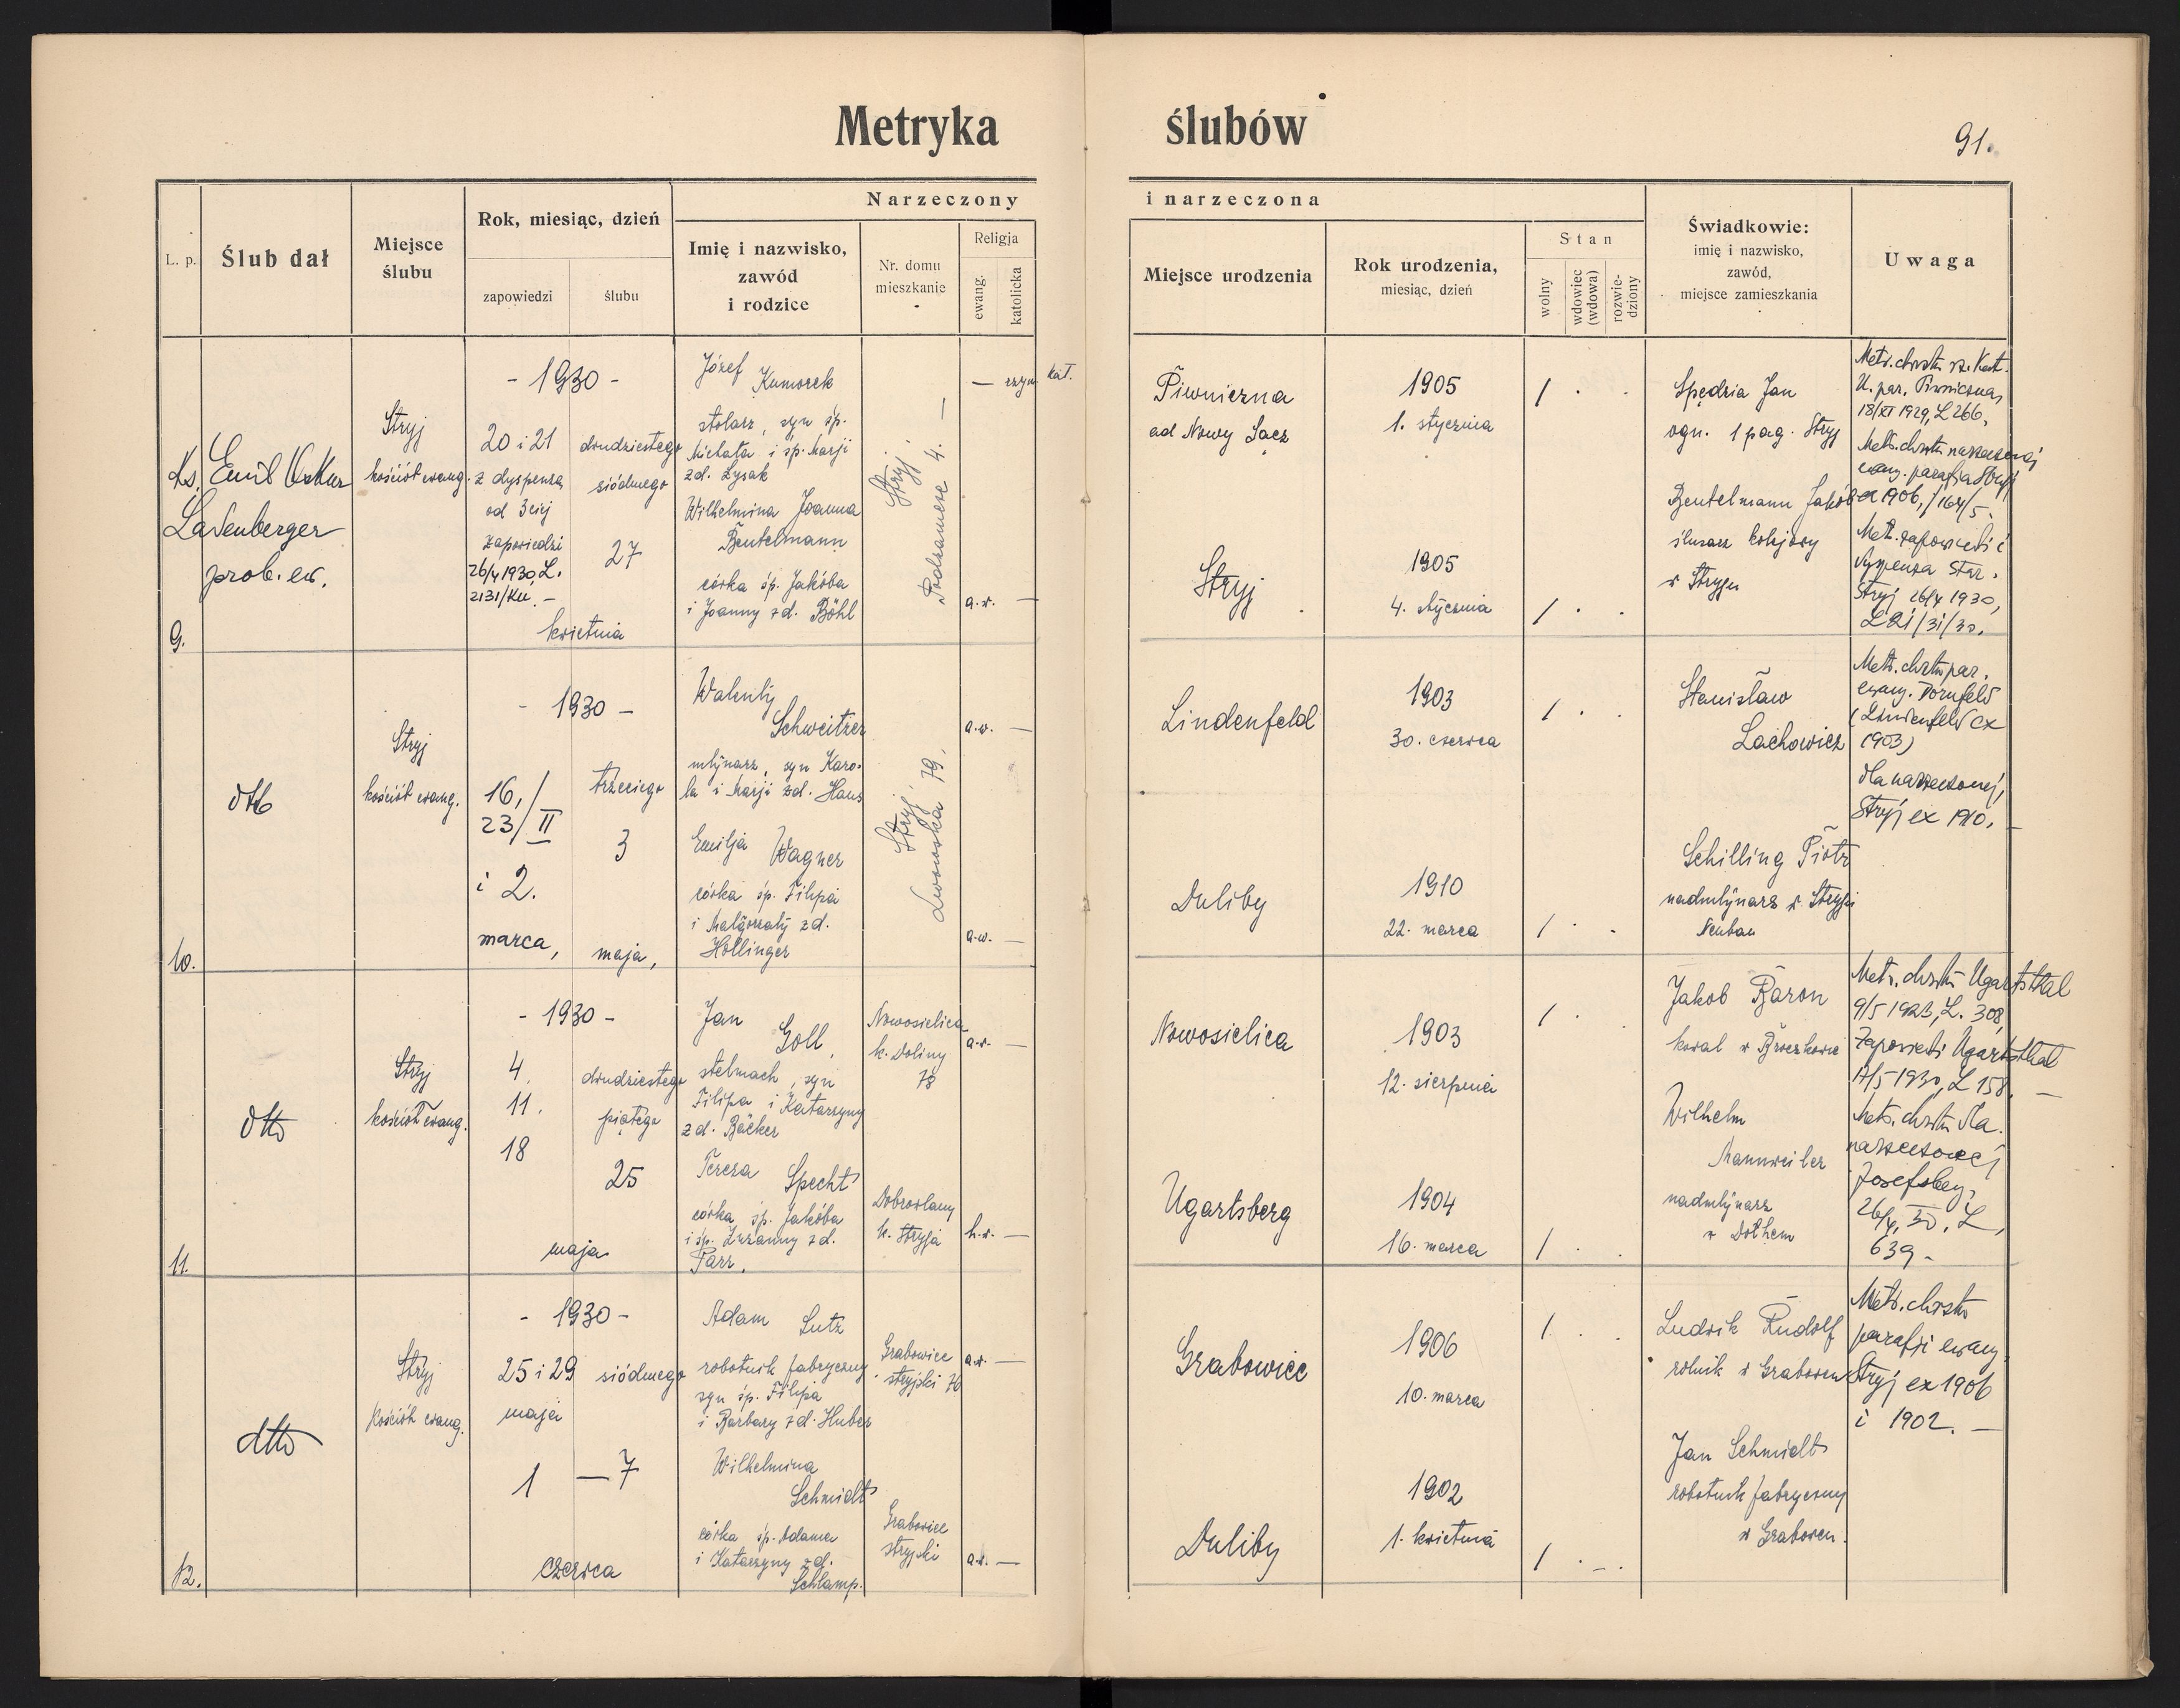 Metryka ślubów
91.
L. p.
Ślub dał
Miejsce ślubu
Rok, miesiąc, dzień
zapowiedzi
ślubu
Narzeczony i narzeczona
Imię i nazwisko, zawód i rodzice
Nr. domu mieszkanie
Religja
ewang.
katolicka
Miejsce urodzenia
Rok urodzenia, miesiąc, dzień
Stan
wolny
wdowiec (wdowa)
rozwiedziony
Świadkowie: imię i nazwisko, zawód, miejsce zamieszkania
Uwaga
9.
Ks. Emil
Ladenberger
prob. ew.
Stryj
kościół ewang.
- 1930 -
20 i 21
z dyspenzą
od 3ciej
zapowiedzi
26/4 1930, L.
2131/Ku. -
dwudziestego
siódmego
27
kwietnia
Józef Kumorek
stolarz, syn śp.
Michała i śp. Marji
zd. Łysak
Wilhelmina Joanna
Beutelmann
córka śp. Jakóba
i Joanny zd. Böhl
Stryj
Podzamcze 4. —
— rzym. kat.
a.w. —
Piwniczna
ad Nowy Sącz
1905
1. stycznia
Stryj
1905
4. stycznia
Spędzia Jan
ogn. 1 pag. Stryj
Beutelmann Jakób
ślusarz kolejowy
w Stryju
Metr. chrztu rz. kat.
U. par. Piwniczna,
18/XI 1929, L 266,
Metr. chrztu narzeczonej
ewang. parafia Stryj
ex 1906, /164/5.
Metr. zapowiedzi i
dyspenza Star.
Stryj 26/4 1930,
L 21/31/30.
10.
dtto
Stryj
kościół ewang.
- 1930 -
16,/
23/ II
i 2.
marca,
trzeciego
3
maja,
Walenty
Schweitzer
młynarz, syn Karo-
la i Marji zd. Haus
Emilja Wagner
córka śp. Filipa
i Małgorzaty zd.
Hollinger
Stryj,
Lwowska 79.
a.w. —
a.w. —
Lindenfeld
1903
30. czerwca
Duliby
1910
22. marca
Stanisław
Lachowicz
Schilling Piotr
nadmłynarz w Stryju
Neubau
Metr. chrztu par.
ewang. Dornfeld
(Lindenfeld ex
1903)
dla narzeczonej,
Stryj ex 1910. —
11.
dtto
Stryj
kościół ewang.
- 1930 -
4.
11.
18
dwudziestego
piątego
25
maja
Jan Goll,
stelmach, syn
Filipa i Katarzyny
zd. Bäcker
Teresa Specht
córka śp. Jakóba
i śp. Zuzanny zd.
Parr.
Nowosielica
k. Doliny
78
Dobrowlany
k. Stryja
a.w. —
h.w. —
Nowosielica
1903
12. sierpnia
Ugartsberg
1904
16. marca
Jakob Baron
kowal w
Wilhelm
Mannweiler
nadmłynarz
w Dołhem
Metr. chrztu Ugartsthal
9/5 1923, L. 308,
Zapowiedzi Ugartsthal
17/5 1930, L 158. —
Metr. chrztu dla
narzeczonej
Josefsberg,
26/4. 30. L,
639 -
12.
dtto
Stryj
kościół ewang.
- 1930 -
25 i 29
maja
1
siódmego
— 7
czerwca
Adam Lutz
robotnik fabryczny,
syn śp. Filipa
i Barbary zd. Huber
Wilhelmina
Schmidt
córka śp. Adama
i Katarzyny zd.
Schlamp.
Grabowiec
stryjski 76
Grabowiec
stryjski
a.w. —
a.w. —
Grabowiec
1906
10. marca
Duliby
1902
1. kwietnia
Ludwik Rudolf
rolnik w Grabowcu
Jan Schmidt
robotnik fabryczny
w Grabowcu.
Metr. chrztu
parafji ewang.
Stryj ex 1906
i 1902. —